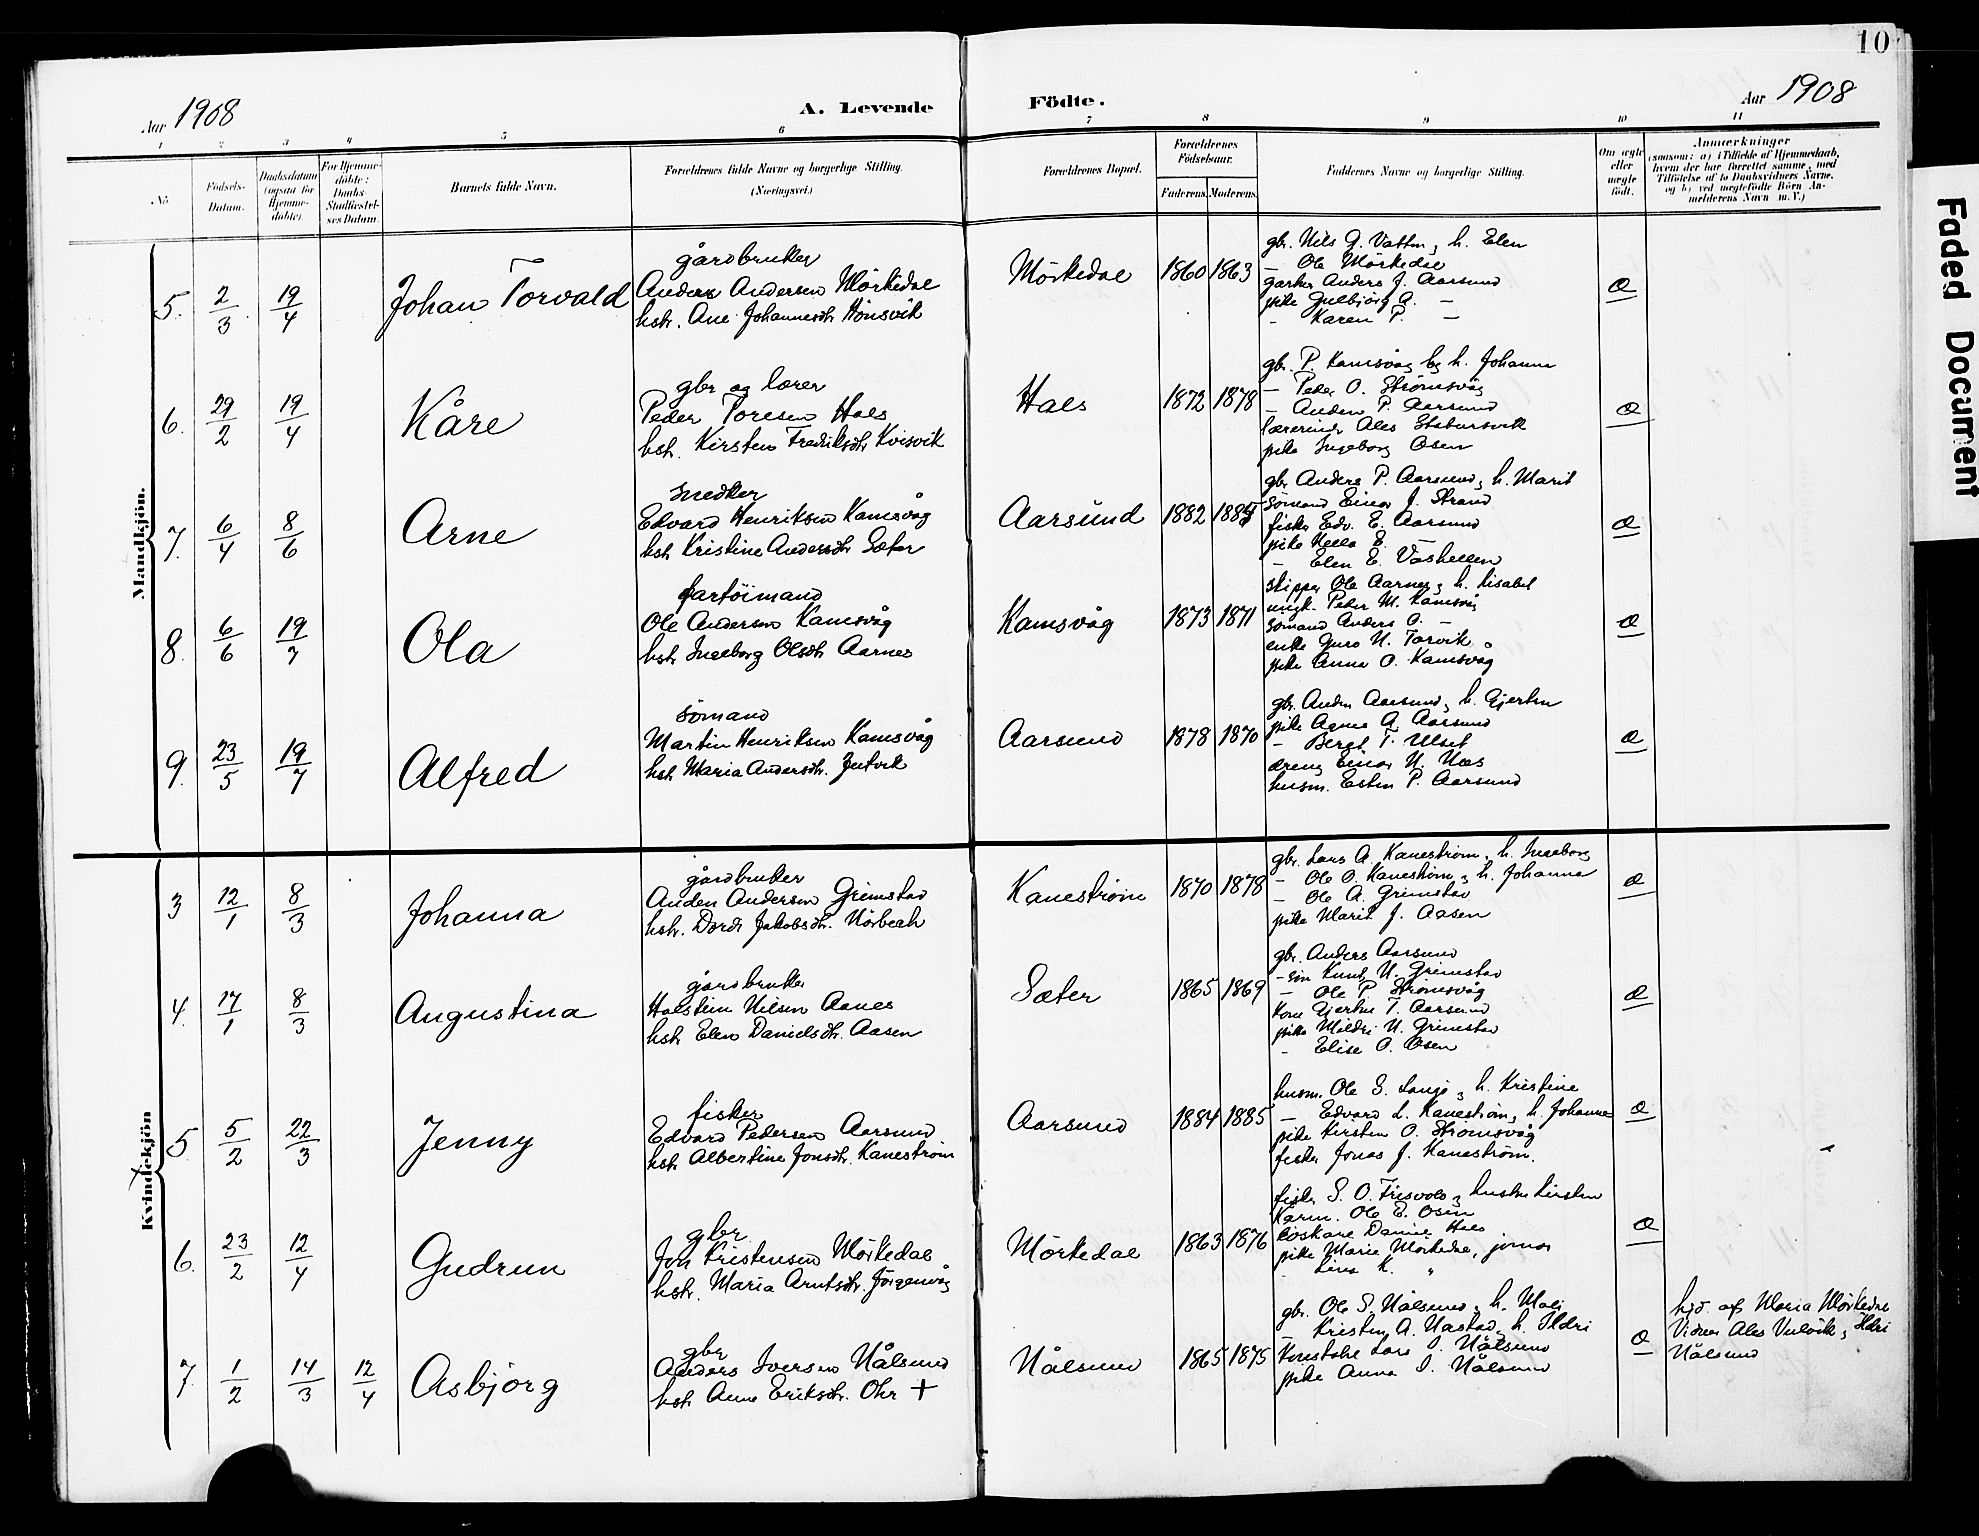 10
Aar 1908
A. Levende Födte.
Aar 1908
1 2 3 4 5 6 7 8 9 10 11
No
Födsels-Datum.
Daabsdatum (ogsaa for Hjemme-döbte).
For Hjemme-döbte: Daabs-Stadfæstel-ses Datum.
Barnets fulde Navn.
Forældrenes fulde Navne og borgerlige Stilling. (Næringsvei.)
Forældrenes Bopæl.
Forældrenes Födselsaar.
Faderens. Moderens.
Faddernes Navne og borgerlige Stilling.
Om ægte eller uægte født.
Anmærkninger
(saasom: a) i Tilfælde af Hjemmedaab, hvem der har forrettet samme, med Tilföielse af to Daabsvidners Navne, og b) ved uægtefödte Börn Anmelderens Navn m. V.)
Mandkjön.
5. 2/3 19/4 Johan Torvald
gårdbruker
Anders Andersen Mörkedal
hstr. Ane Johannesdtr Hönsvik
Mörkedal 1860 1863
gbr. Nils G. Vatten, h. Elen
– Ole Mörkedal
garker Anders J. Aarsund
pike Gulbjörg A. –
– Karen P. –
Æ
6. 29/2 19/4 Kåre
gbr og lærer
Peder Toresen Hals
hstr. Kirsten Fredriksdtr Kvisvik
Hals 1872 1878
gbr. P. Kamsvåg og h. Johanna
– Peder O. Strömsvåg
– Anders P. Aarsund
lærerinde Ales Stabursvik
pike Ingeborg Osen
Æ
7. 6/4 8/6 Arne
snedker
Edvard Henriksen Kamsvåg
hstr Kristine Andersdtr Sæter
Aarsund 1882 1885
gbr Anders P. Aarsund, h. Marit
sömand Einar J. Strand
fisker Edv. E. Aarsund
pike Nella E. –
– Elen E. Våshellen
Æ
8. 6/6 19/7 Ola
fartöimand
Ole Andersen Kamsvåg
hstr Ingeborg Olsdtr Aarnes
Kamsvåg 1873 1871
skipper Ole Aarnes, h. Lisabet
ungk. Peder M. Kamsvåg
sömand Anders O. –
enke Guro N. Torvik
pike Anna O. Kamsvåg
Æ
9. 23/5 19/7 Alfred
sömand
Martin Henriksen Kamsvåg
hstr Maria Andersdtr. Jutvik
Aarsund 1878 1870
gbr. Anders Aarsund, h. Gjertru
pike Agnes A. Aarsund
– Bergt. T. Ulset
dreng Einar N. Næs
husm. Esten P. Aarsund
Æ
Kvindekjön
3 12/1 8/3 Johanna
gårdbruker
Anders Andersen Grimstad
hstr. Dordi Jakobsdtr. Nörbech
Kaneström 1870 1878
gbr. Lars A. Kaneström, h. Ingeborg
– Ole O. Kaneström, h. Johanna
– Ole A. Grimstad
pike Marit J. Aasen
Æ
4. 17/1 8/3 Augustina
gårdbruker
Halstein Nilsen Aanes
hstr Elen Danielsdtr. Aasen
Sæter 1865 1869
gbr. Anders Aarsund
– sön Knut N. Grimstad
– Ole P. Strömsvåg
kone Gjertru T. Aarsund
pike Mildri N. Grimstad
– Elise O. Osen
Æ
5. 5/2 22/3 Jenny
fisker
Edvard Pedersen Aarsund
hstr Albertine Jonsdtr. Kaneström
Aarsund 1884 1885
husm. Ole S. Langö, h. Kristine
– Edvard L. Kaneström, h. Johanne
pike Kirsten O. Strömsvåg
fisker Jonas J. Kaneström.
Æ
6. 23/2 12/4 Gudrun
gbr.
Jon Kristensen Mörkedal
hstr. Maria Arntsdtr. Jörgenvåg
Mörkedal 1863 1876
fisker S. O. Frisvold, hustru Kirsten
Kårm. Ole E. Osen
löskare Daniel Hals
pike Marie Mörkedal, jomor
– Lina K. "
Æ
7. 1/2 14/3 12/4 Asbjörg
gbr
Anders Iversen Nålsund
hstr Anne Eriksdtr. Ohr +
Nålsund 1865 1875
gbr. Ole S. Nålsund, h. Mali
– Kristen A. Nastad, h. Ildri
Konstabel Lars I. Nålsund
pike Anna I. Nålsund
Æ
hjd. af Maria Mörkedal
Vidner Ales Vulvik, Ildri
Nålsund
Faded Document